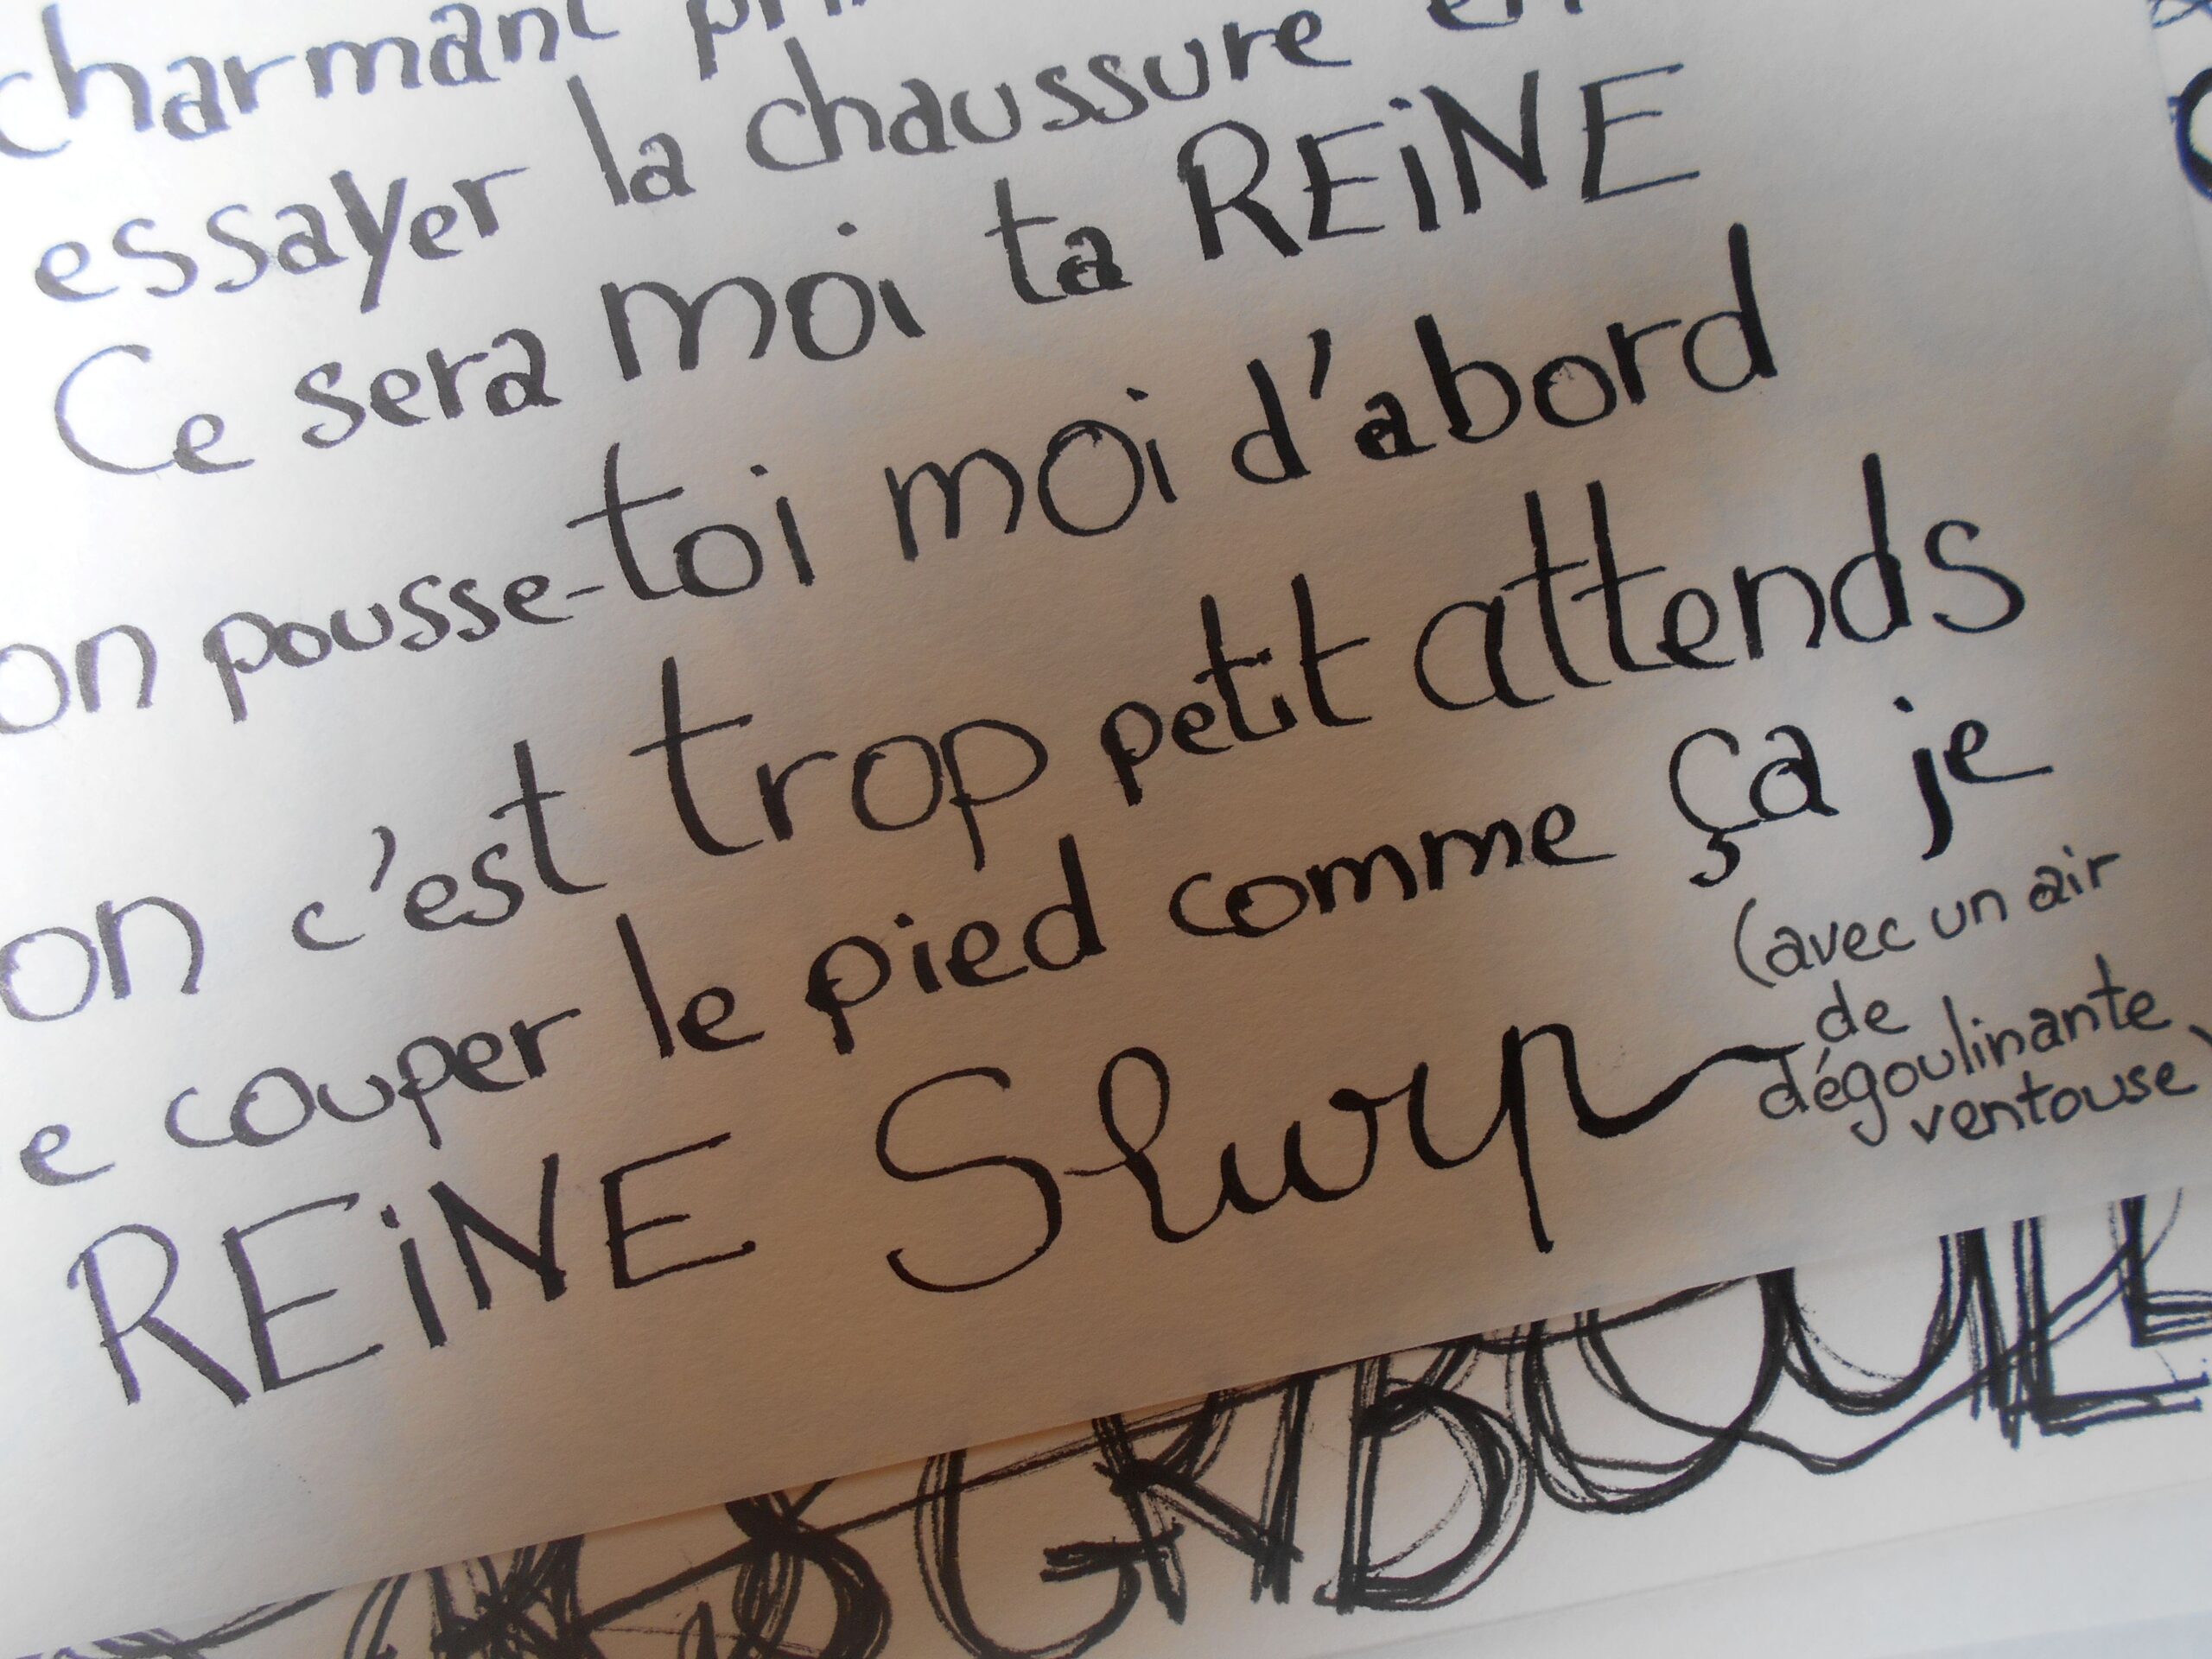 charmant
essayer la chaussure
Ce sera moi ta REiNE
on pousse-toi moi d'abord
on c'est trop petit attends
e couper le pied comme ça je
(avec un air
de
dégoulinante
ventouse)
REiNE Slurp